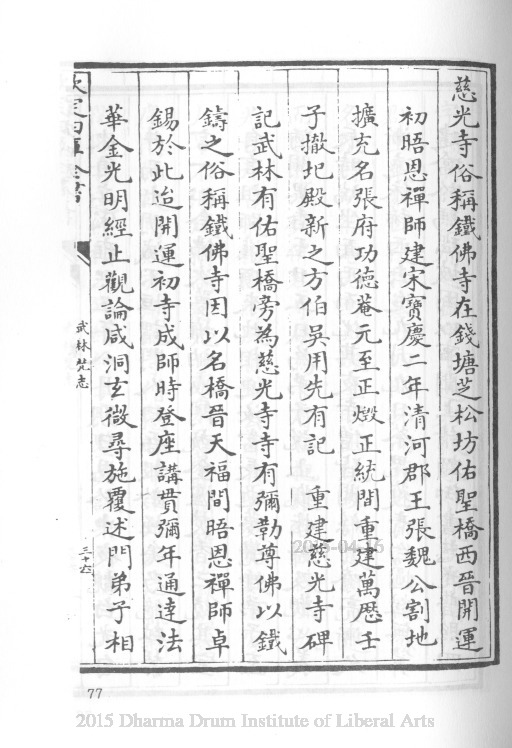 慈光寺俗稱鐵佛寺在錢塘芝松坊佑聖橋西晉開運
初晤恩禪師建宋寶慶二年清河郡王張魏公割地
擴充名張府功德菴元至正燬正統間重建萬歷壬
子撤圯殿新之方伯吳用先有記 重建慈光寺碑
記武林有佑聖橋旁為慈光寺寺有彌勒尊佛以鐵
鑄之俗稱鐵佛寺因以名橋晉天福間晤恩禪師卓
錫於此迨開運初寺成師時登座講貫彌年通達法
華金光明經止觀論咸洞玄微尋施覆述門弟子相
欽定四庫全書
武林梵志
三十六
2015-04-15
77
2015 Dharma Drum Institute of Liberal Arts